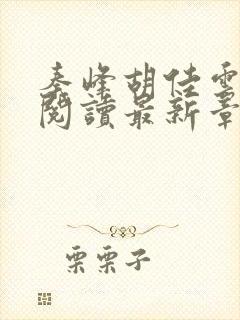 秦峰胡佳雲
閱讀最新章
栗栗子